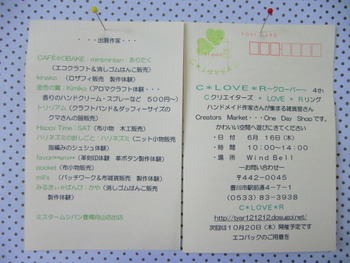 ・・・出展作家・・・
CAFÉ☆OBAKE : minbiniban : ありたく
(エコクラフト＆消しゴムはんこ販売)
kinakko (ロザフィ販売 製作体験)
金色の繭 : Kimiko (アロマクラフト体験・
香りのハンドクリーム・スプレーなど 500円～)
トリリアム (クラフトバンド＆ダッフィーサイズの
クマさんの服販売)
Happy Time : SAT (布小物 木工販売)
ハリネズミのはしごと : ハリネズミ (ニット小物販売
指編みのシュシュ体験)
(革刻印体験 革ボタン製作体験)
rocket (布小物販売)
mill's (パッチワーク＆布雑貨販売 製作体験)
(消しゴムはんこ販売
製作体験)
POST CARD
C＊LOVE＊R～クローバー～ 4th
Cクリエイターズ + LOVE + Rリング
ハンドメイド作家さんが集まる雑貨屋さん
Creators Market・・・One Day Shop です。
かわいい空間へ遊びにきてください
・日 時 6月 16日(木)
・時 間 10:00～14:00
・場 所 Wind Bell
～お問い合わせ～
〒442-0045
豊川市駅前通4－7－1
(0533) 84-3938
C＊LOVE＊R
次回は10月20日(木)開催予定です
エコバックのご用意を